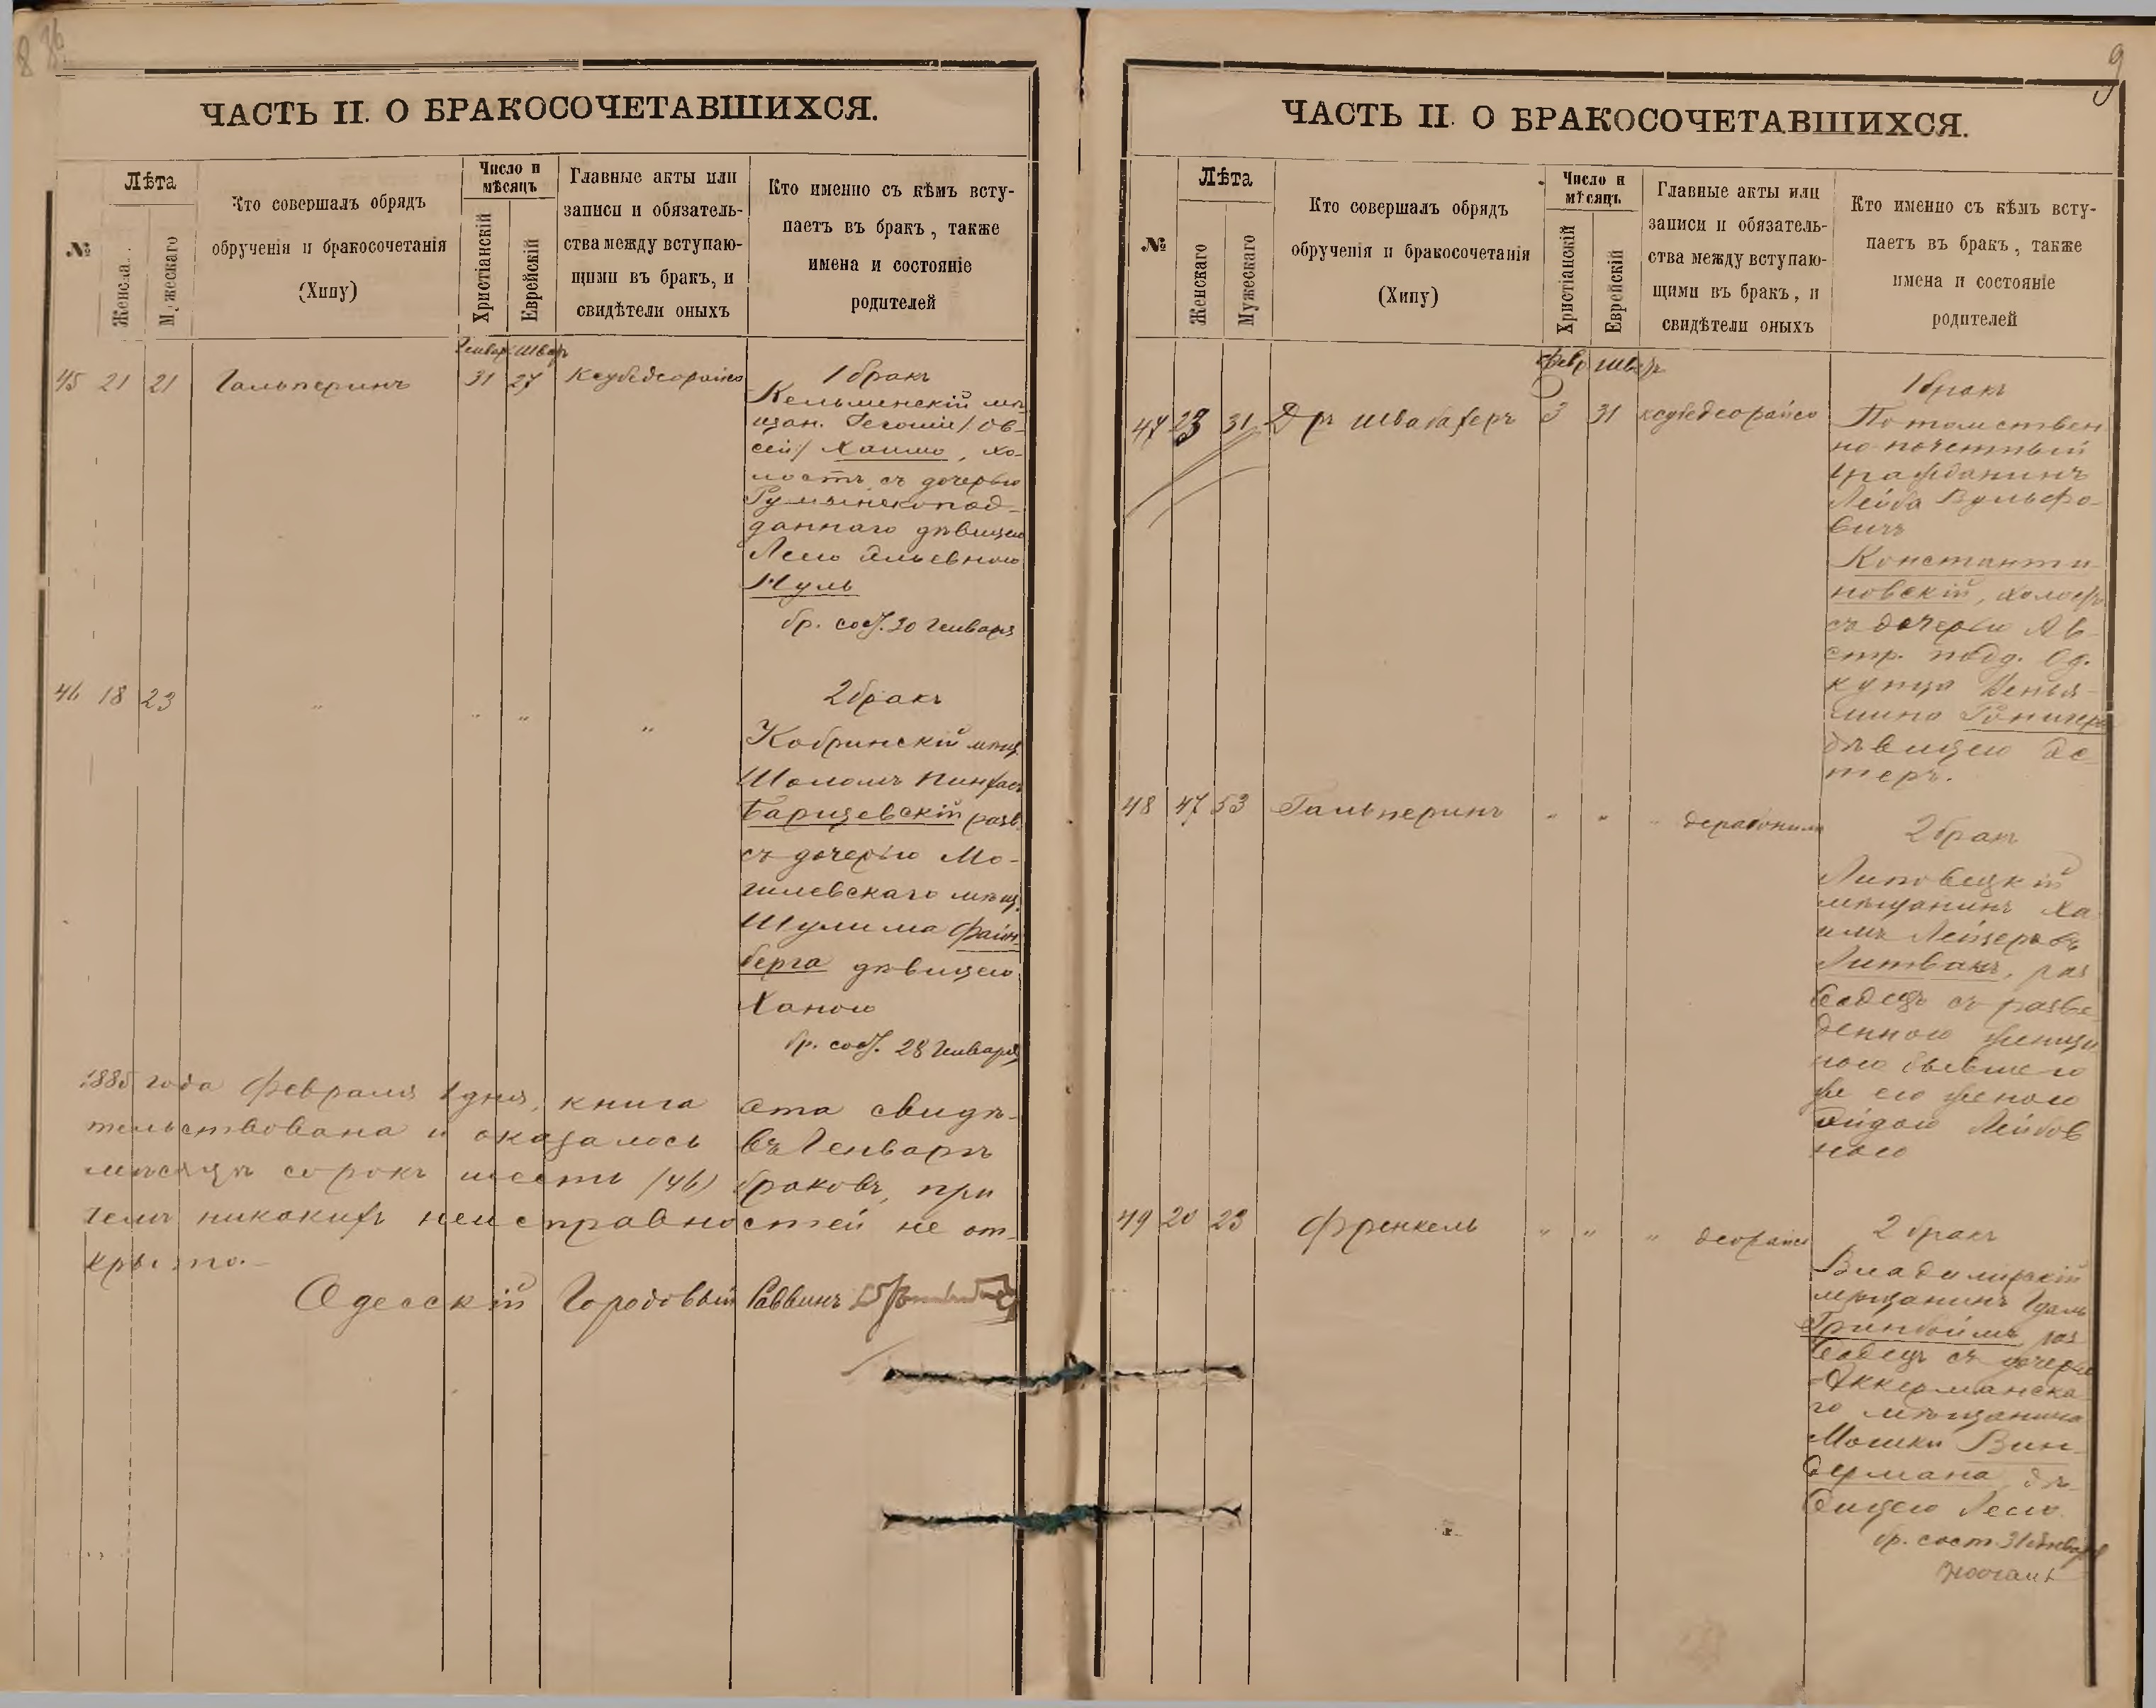 ЧАСТЬ II. О БРАКОСОЧЕТАВШИХСЯ.
№
Лѣта
Мужескаго
Кто совершалъ обрядъ
обрученія и бракосочетанія
(Хипу)
Число и
мѣсяцъ
Христіанскій
Еврейскій
Главные акты или
записи и обязатель-
ства между вступаю-
щими въ бракъ, и
свидѣтели оныхъ
Кто именно съ кѣмъ всту-
паетъ въ бракъ, также
имена и состояніе
родителей
45 21 21 Гальперинъ 31 27
1 бракъ
Кельменскій мѣ-
щан. /Ов-
сей/ Хаимо, хо-
лостъ съ дочерью
Румынскопод-
даннаго дѣвицею
Лею
Нуль
бр. сост. 30 Генваря
46 18 23 " " " "
2 бракъ
Кобринскій мѣщ.
Шоломъ Пинхас
Барщевскій разв.
съ дочерью Мо-
гилевскаго мѣщ.
Шулима Файн-
берга дѣвицею
Ханою
бр. сост. 28 Генваря
1885 года Февраля 1 дня, книга эта свидѣ-
тельствована и оказалось въ Генварѣ
мѣсяцѣ сорокъ шесть /46/ браковъ, при
чемъ никакихъ неисправностей не от-
крыто.
Одесскій Городовый Раввинъ
9
ЧАСТЬ II. О БРАКОСОЧЕТАВШИХСЯ.
№
Лѣта
Женскаго
Мужескаго
Кто совершалъ обрядъ
обрученія и бракосочетанія
(Хипу)
Число и
мѣсяцъ
Христіанскій
Еврейскій
Главные акты или
записи и обязатель-
ства между вступаю-
щими въ бракъ, и
свидѣтели оныхъ
Кто именно съ кѣмъ всту-
паетъ въ бракъ, также
имена и состояніе
родителей
Февр Шватъ
47 23 31 Д-ръ Швабахеръ 3 31 ксубедеорайсо
1 бракъ
Потомствен
но почетный
гражданинъ
Лейба Вульфо-
вичъ
Константи-
новскій, холостъ
съ дочерью Ав-
стр. подд. Од.
купца Венья-
мина
дѣвицею Эс-
теръ.
48 47 53 Гальперинъ " " "
2 бракъ
Липовецкій
мѣщанинъ Ха
имъ Лейзеровъ
Литвакъ, раз
водецъ съ разве
денною женщи
ною бывшею
же его женою
Лейбов
ною
49 20 23 Френкель " " "
2 бракъ
Владимірскій
мѣщанинъ
Гринбоймъ раз
водецъ съ дочерью
Аккерманска
го мѣщанина
Мошки Вин-
дермана дѣ-
вицею Лею.
бр. сост. 31 Января